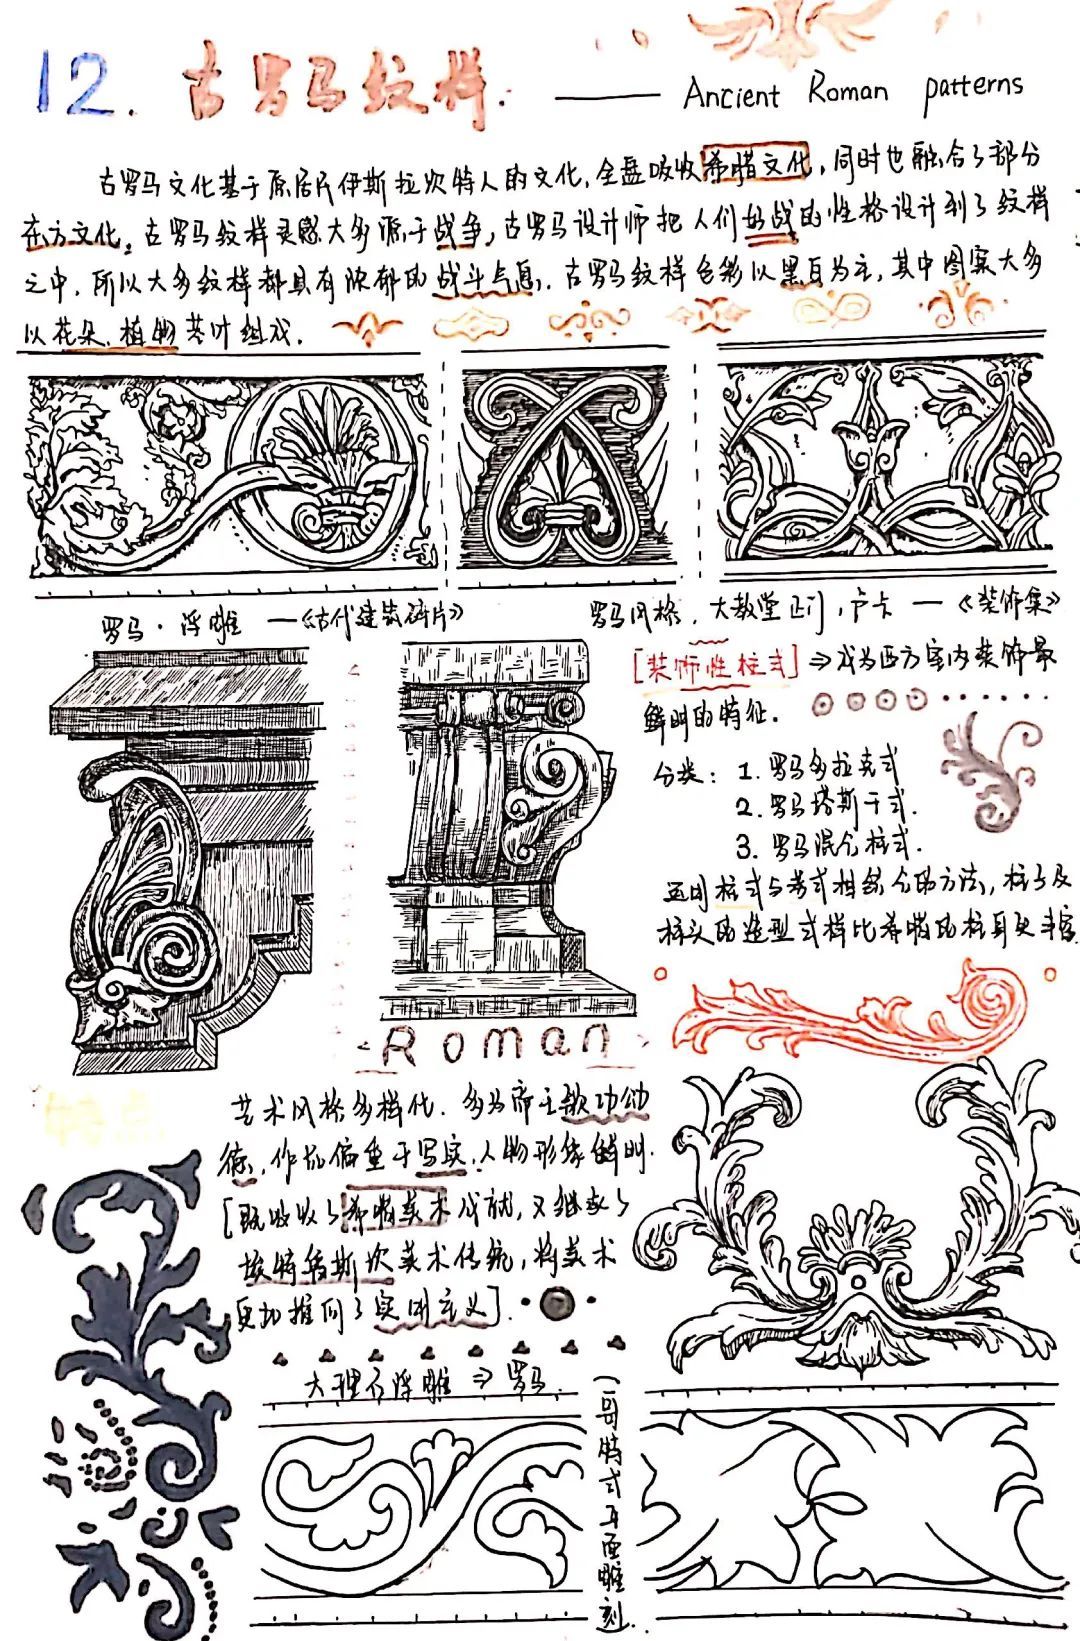 12. 古罗马纹样. —— Ancient Roman patterns
古罗马文化基于原居民伊斯拉坎特人的文化,全盘吸收希腊文化,同时也融合了部分
东方文化。古罗马纹样灵感大多源于战争,古罗马设计师把人们好战的性格设计到了纹样
之中,所以大多纹样都具有浓郁的战斗气息.古罗马纹样色彩以黑白为主,其中图案大多
以花朵、植物茎叶组成.
罗马·浮雕 —《古代建筑碎片》
罗马风格,大教堂正门,卢卡 —《装饰集》
[装饰性柱式]⇒成为西方室内装饰最
鲜明的特征.
分类: 1. 罗马多拉克式
2. 罗马塔斯干式.
3. 罗马混合柱式.
运用柱式与券式相结合的方法,柱子及
柱头的造型式样比希腊的柱身更丰富
Roman
特点
艺术风格多样化.多为帝王歌功颂
德,作品偏重于写实,人物形象鲜明.
[既吸收了希腊美术成就,又继承了
埃特鲁斯坎美术传统,将美术
更加推向了实用主义].
大理石浮雕⇒罗马
哥特式平面雕刻.